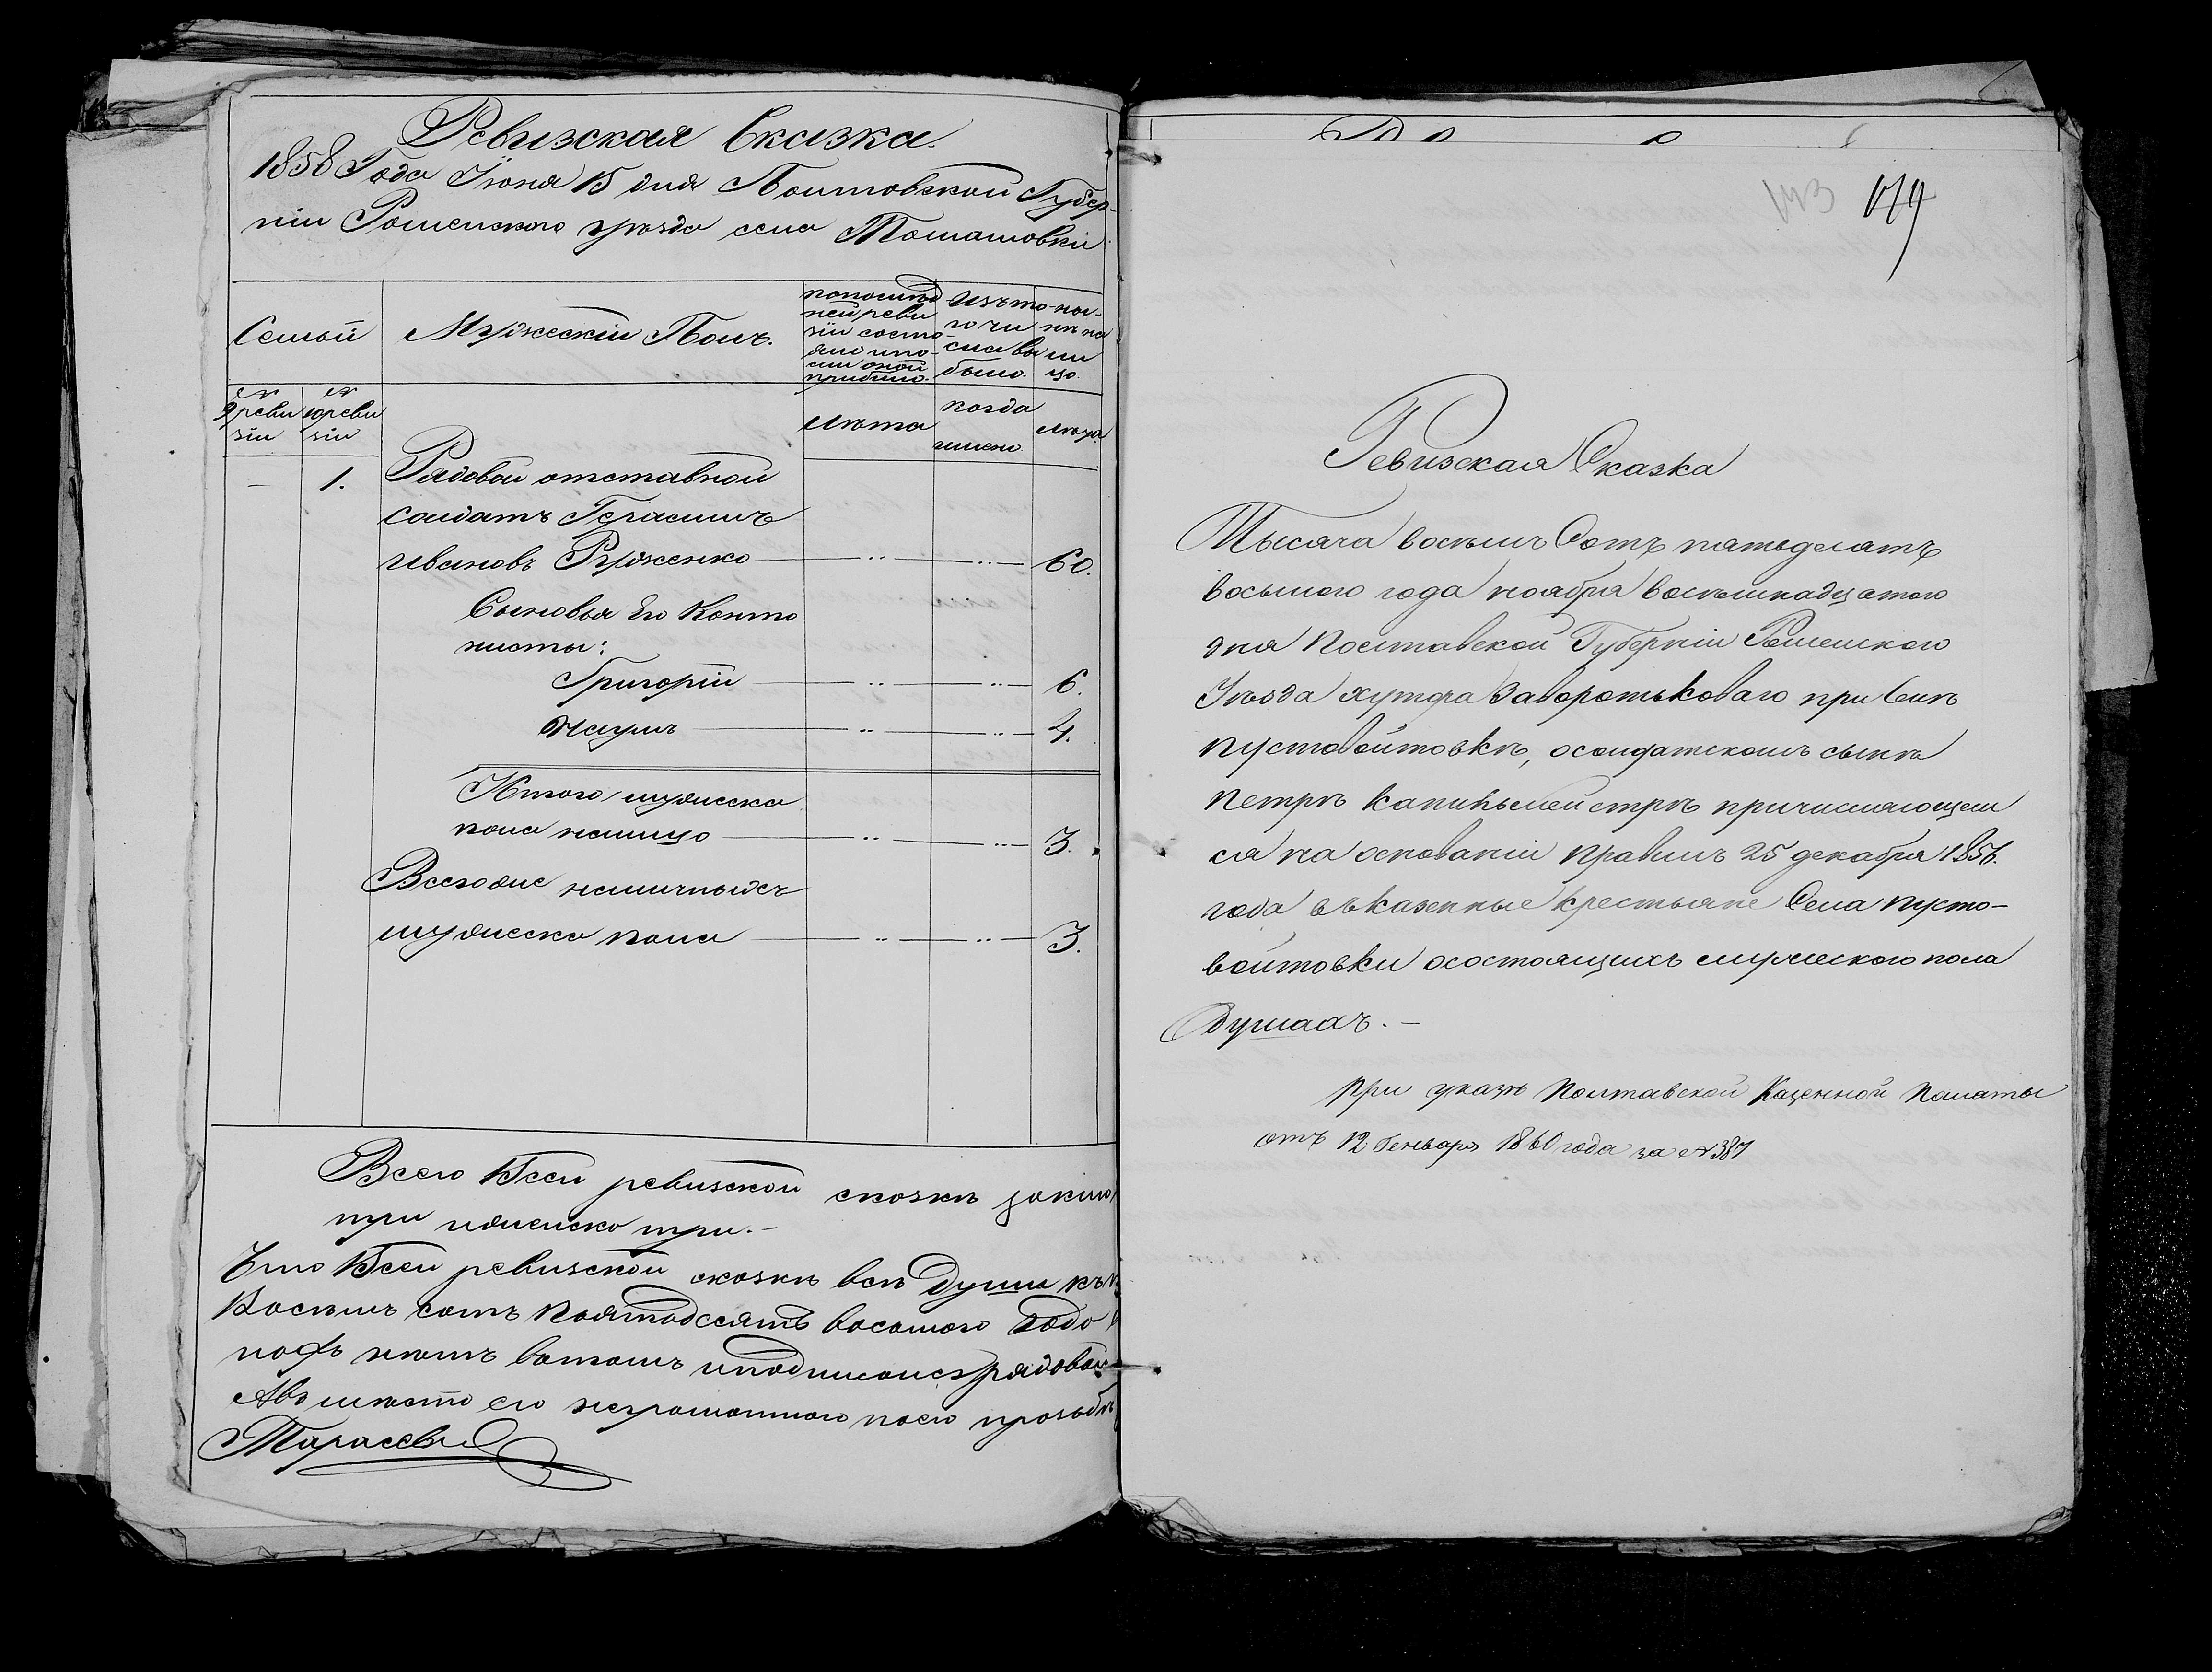 Ревизская Сказка.
1858 Года Іюня 15 дня Полтовской Губер-
ніи Роменского уѣзда села Томашовки
Семьи
Мужескій Полъ.
По послѣд
ней реви
зіи состо
яло и по-
сли оной
прибыло.
Изъ то
го чи
сла вы
было.
Ны-
нѣ на
ли
цо.
№
9 реви
зіи
№
10 реви
зіи
Лѣта
когда
имено
Лѣта
— 1. Рядовой отставной
солдатъ Герасимъ
Ивановъ Руженко — „ — „ — 60.
Сыновья Его Канто
нисты:
Григорій — „ — „ — 6.
Наумъ — „ — „ — 4.
Итого мужеска
пола налицо — „ — „ — 3.
Всего же наличныхъ
мужеска пола — „ — „ — 3.
Всего в сей ревизской сказкѣ заклю
три и женско три.—
Что в сей ревизской сказкѣ всѣ души къ
Восемь сотъ Пятдесятъ восьмого Года
нофъ нѣтъ в томъ и подписался рядовой
А вмѣсто его неграмотного по его прозьбѣ
Тарасев
143 179
Ревизская Сказка
Тысяча восемь Сотъ пятьдесятъ
восьмого года ноября восемнадцатого
дня Полтавской Губерніи Роменского
Уѣзда хутора Заворотьковаго при Селѣ
Пустовойтовкѣ, о солдатскомъ сынѣ
Петрѣ Капельмейстрѣ причисляющем
ся на основаніи правилъ 25 декабря 1856.
года въ казенные крестьяне Села Пусто-
войтовки о состоящихъ мужеского пола
Душахъ.—
При указѣ Полтавской Казенной Палаты
отъ 12 Генваря 1860 года за № 387